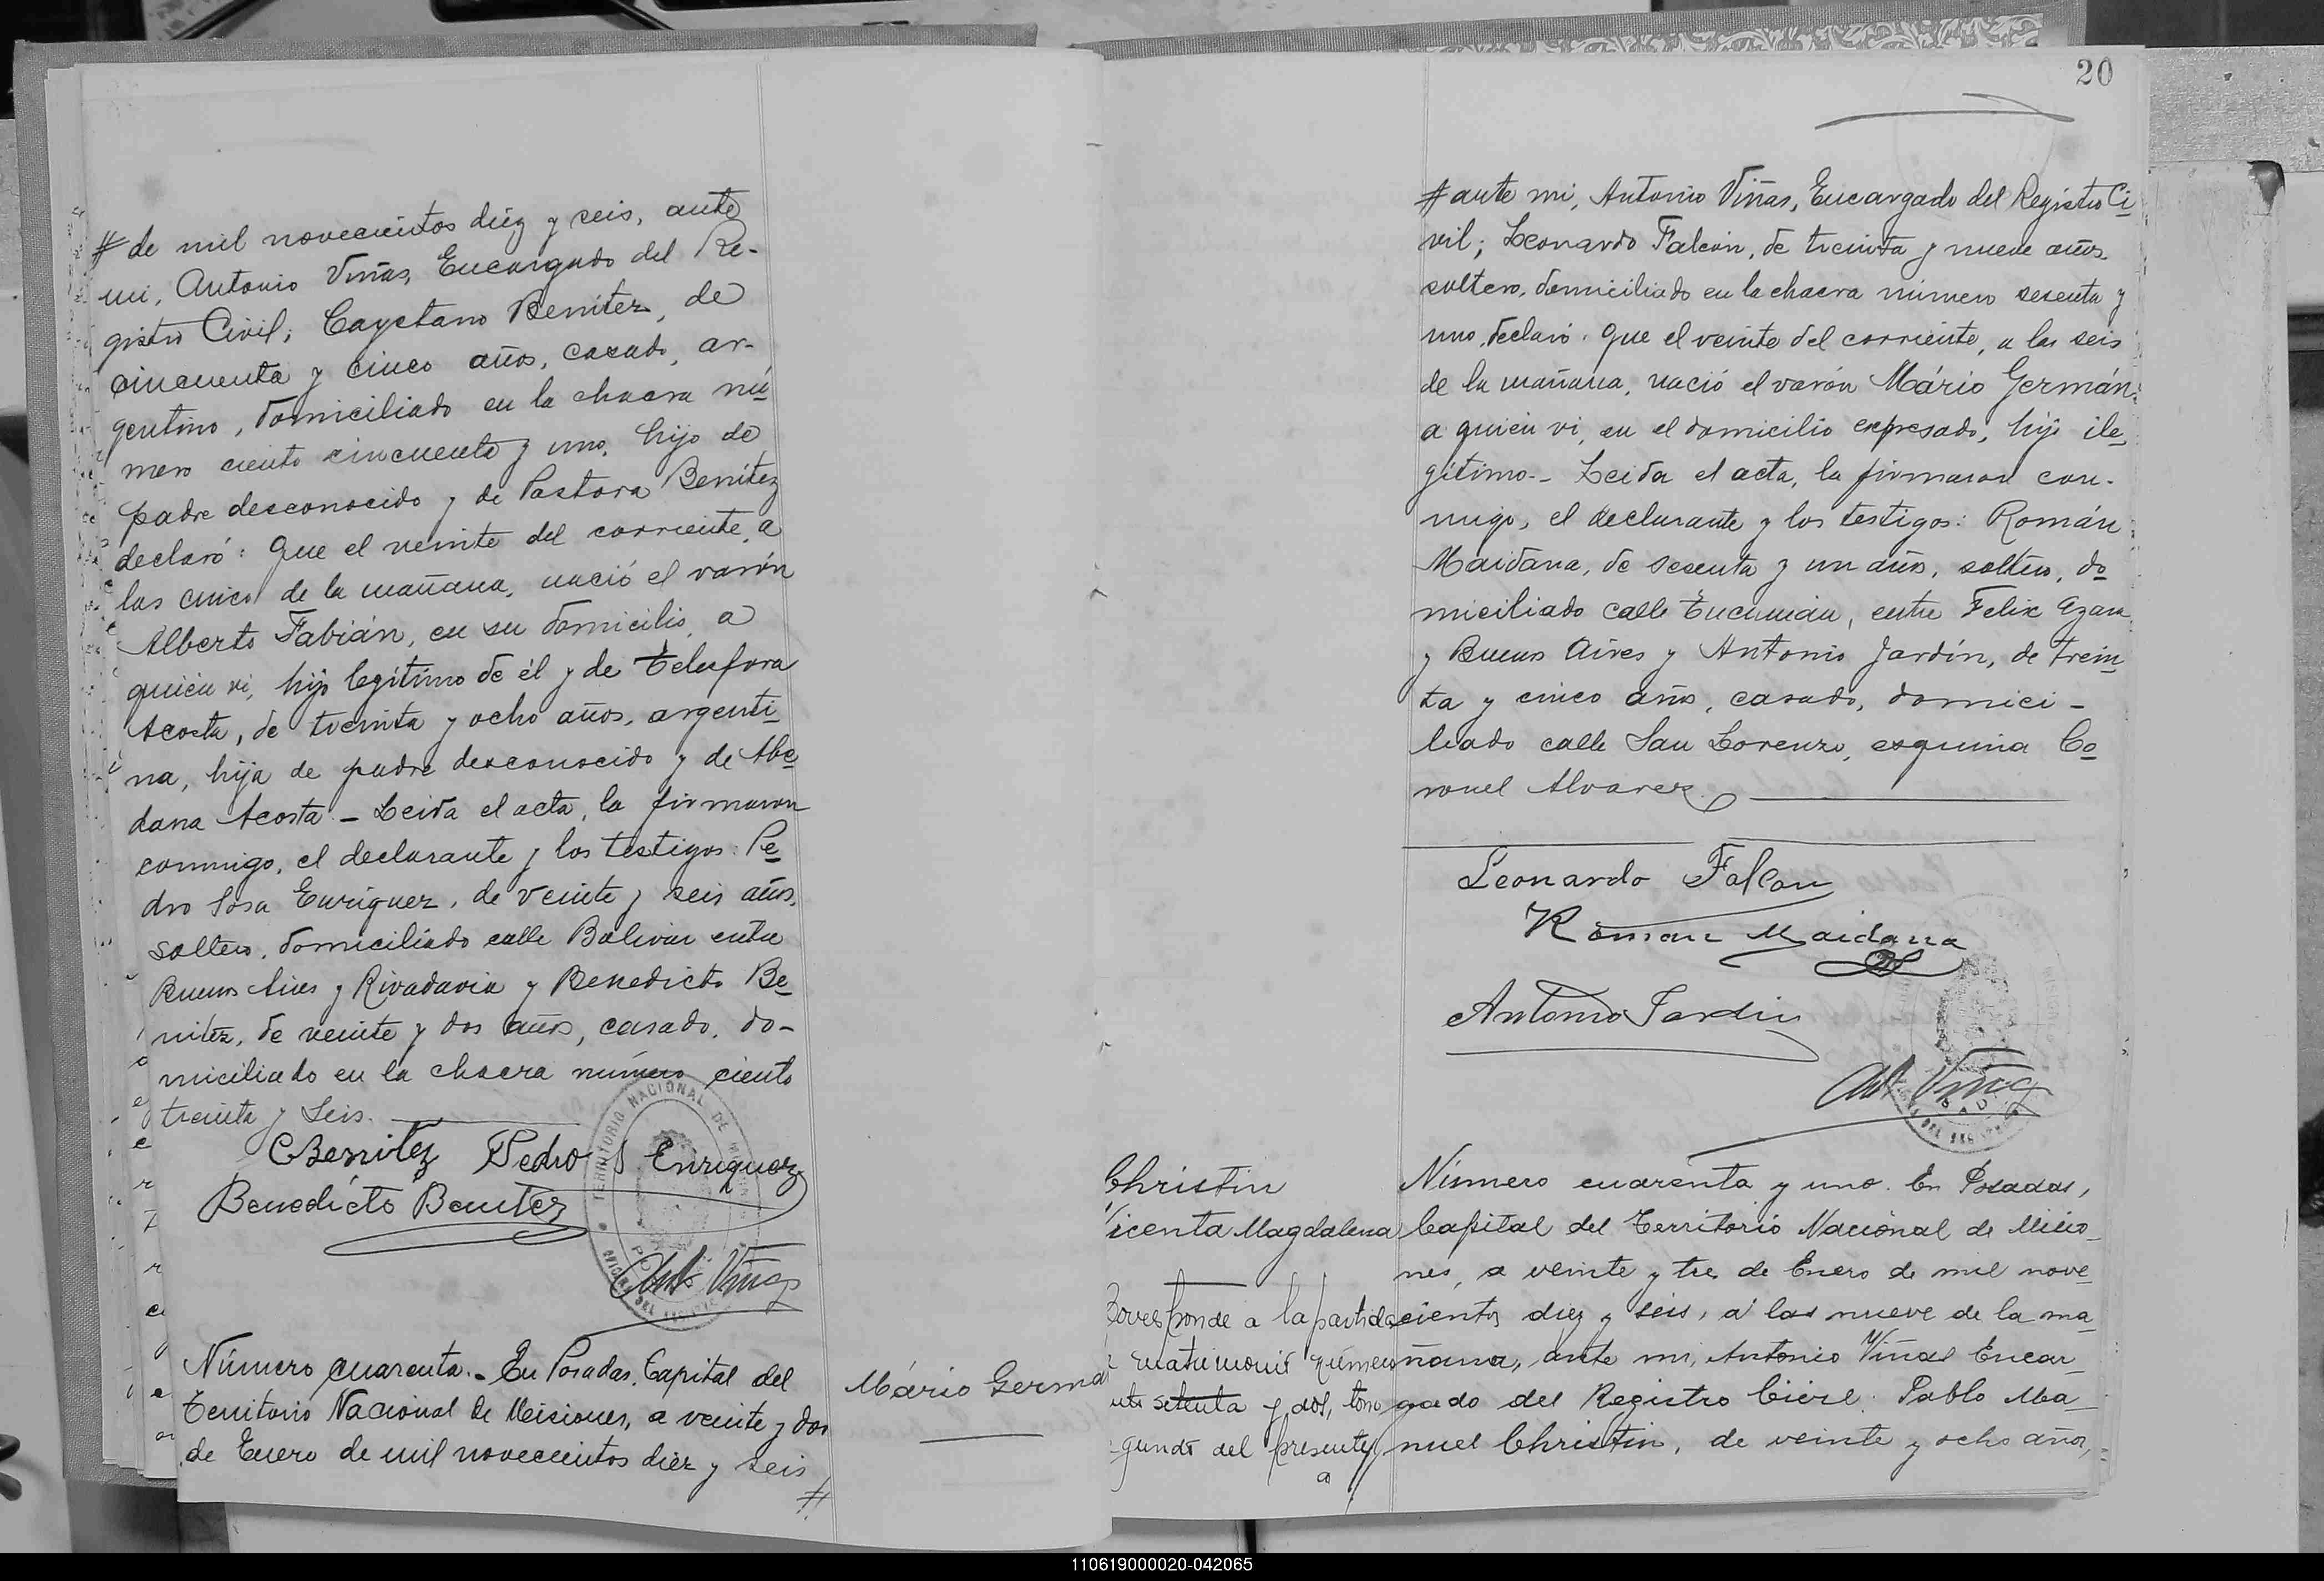 # de mil novecientos diez y seis, ante
mi, Antonio Viñas, Encargado del Re-
gistro Civil; Cayetano Benitez, de
cincuenta y cinco años, casado, ar-
gentino, domiciliado en la chacra nú
mero ciento cincuenta y uno, hijo de
padre desconocido y de Pastora Benítez
declaró: Que el veinte del corriente, a
las cinco de la mañana, nació el varón
Alberto Fabián, en su domicilio, a
quien vi, hijo legítimo de él y de Telesfora
Acosta, de treinta y ocho años, argenti
na, hija de padre desconocido y de Abe
dana Acosta.- Leida el acta, la firmaron
conmigo, el declarante y los testigos: Pe
dro Sosa Enríquez, de veinte y seis años,
soltero, domiciliado calle Bolivar entre
Buenos Aires y Rivadavia y Benedicto Be
nitez, de veinte y dos años, casado, do-
miciliado en la chacra número ciento
treinta y seis.
CBenitez Pedro S Enriquez
Benedicto Benitez
TERRITORIO NACIONAL DE
Ant Viñas
Número cuarenta.- En Posadas, Capital del
Territorio Nacional de Misiones, a veinte y dos
de Enero de mil novecientos diez y seis
#
Mário Germa
20
# ante mi, Antonio Viñas, Encargado del Registro Ci
vil; Leonardo Falcón, de treinta y nueve años
soltero, domiciliado en la chacra número sesenta y
uno, declaró: Que el veinte del corriente, a las seis
de la mañana, nació el varón Mário Germán,
a quien vi, en el domicilio expresado, hijo ile
gitimo.- Leida el acta, la firmaron con-
migo, el declarante y los testigos: Román
Maidana, de sesenta y un años, soltero, do
miciliado calle Tucumán, entre Felix Azara
y Buenos Aires y Antonio Jardín, de trein
ta y cinco años, casado, domici-
liado calle San Lorenzo, esquina Co
ronel Alvarez.
Leonardo Falcon
Roman Maidana
Antonio Jardin
Ant Viñas
Christin
Vicenta Magdalena
Corresponde a la partida
matrimonio número
setenta y dos, tomo
gundo del presente
a
Número cuarenta y uno. En Posadas,
Capital del Territorio Nacional de Misio
nes, a veinte y tres de Enero de mil nove
cientos diez y seis, a las nueve de la ma
ñana, ante mi, Antonio Viñas Encar
gado del Registro Civil: Pablo Ma
nuel Christin, de veinte y ocho años,
110619000020-042065